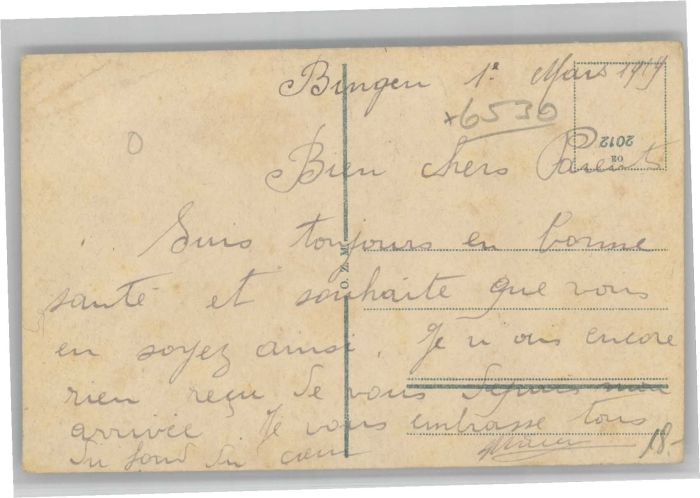 Bingen 1e Mars 1919
*6530
2012
O
Bien chers Parents
Suis toujours en bonne
O. Z. M.
santé et souhaite que vous
en soyez ainsi. Je n'ai encore
rien reçu de vous depuis mon
arrivée Je vous embrasse tous
du fond du cœur
18.-